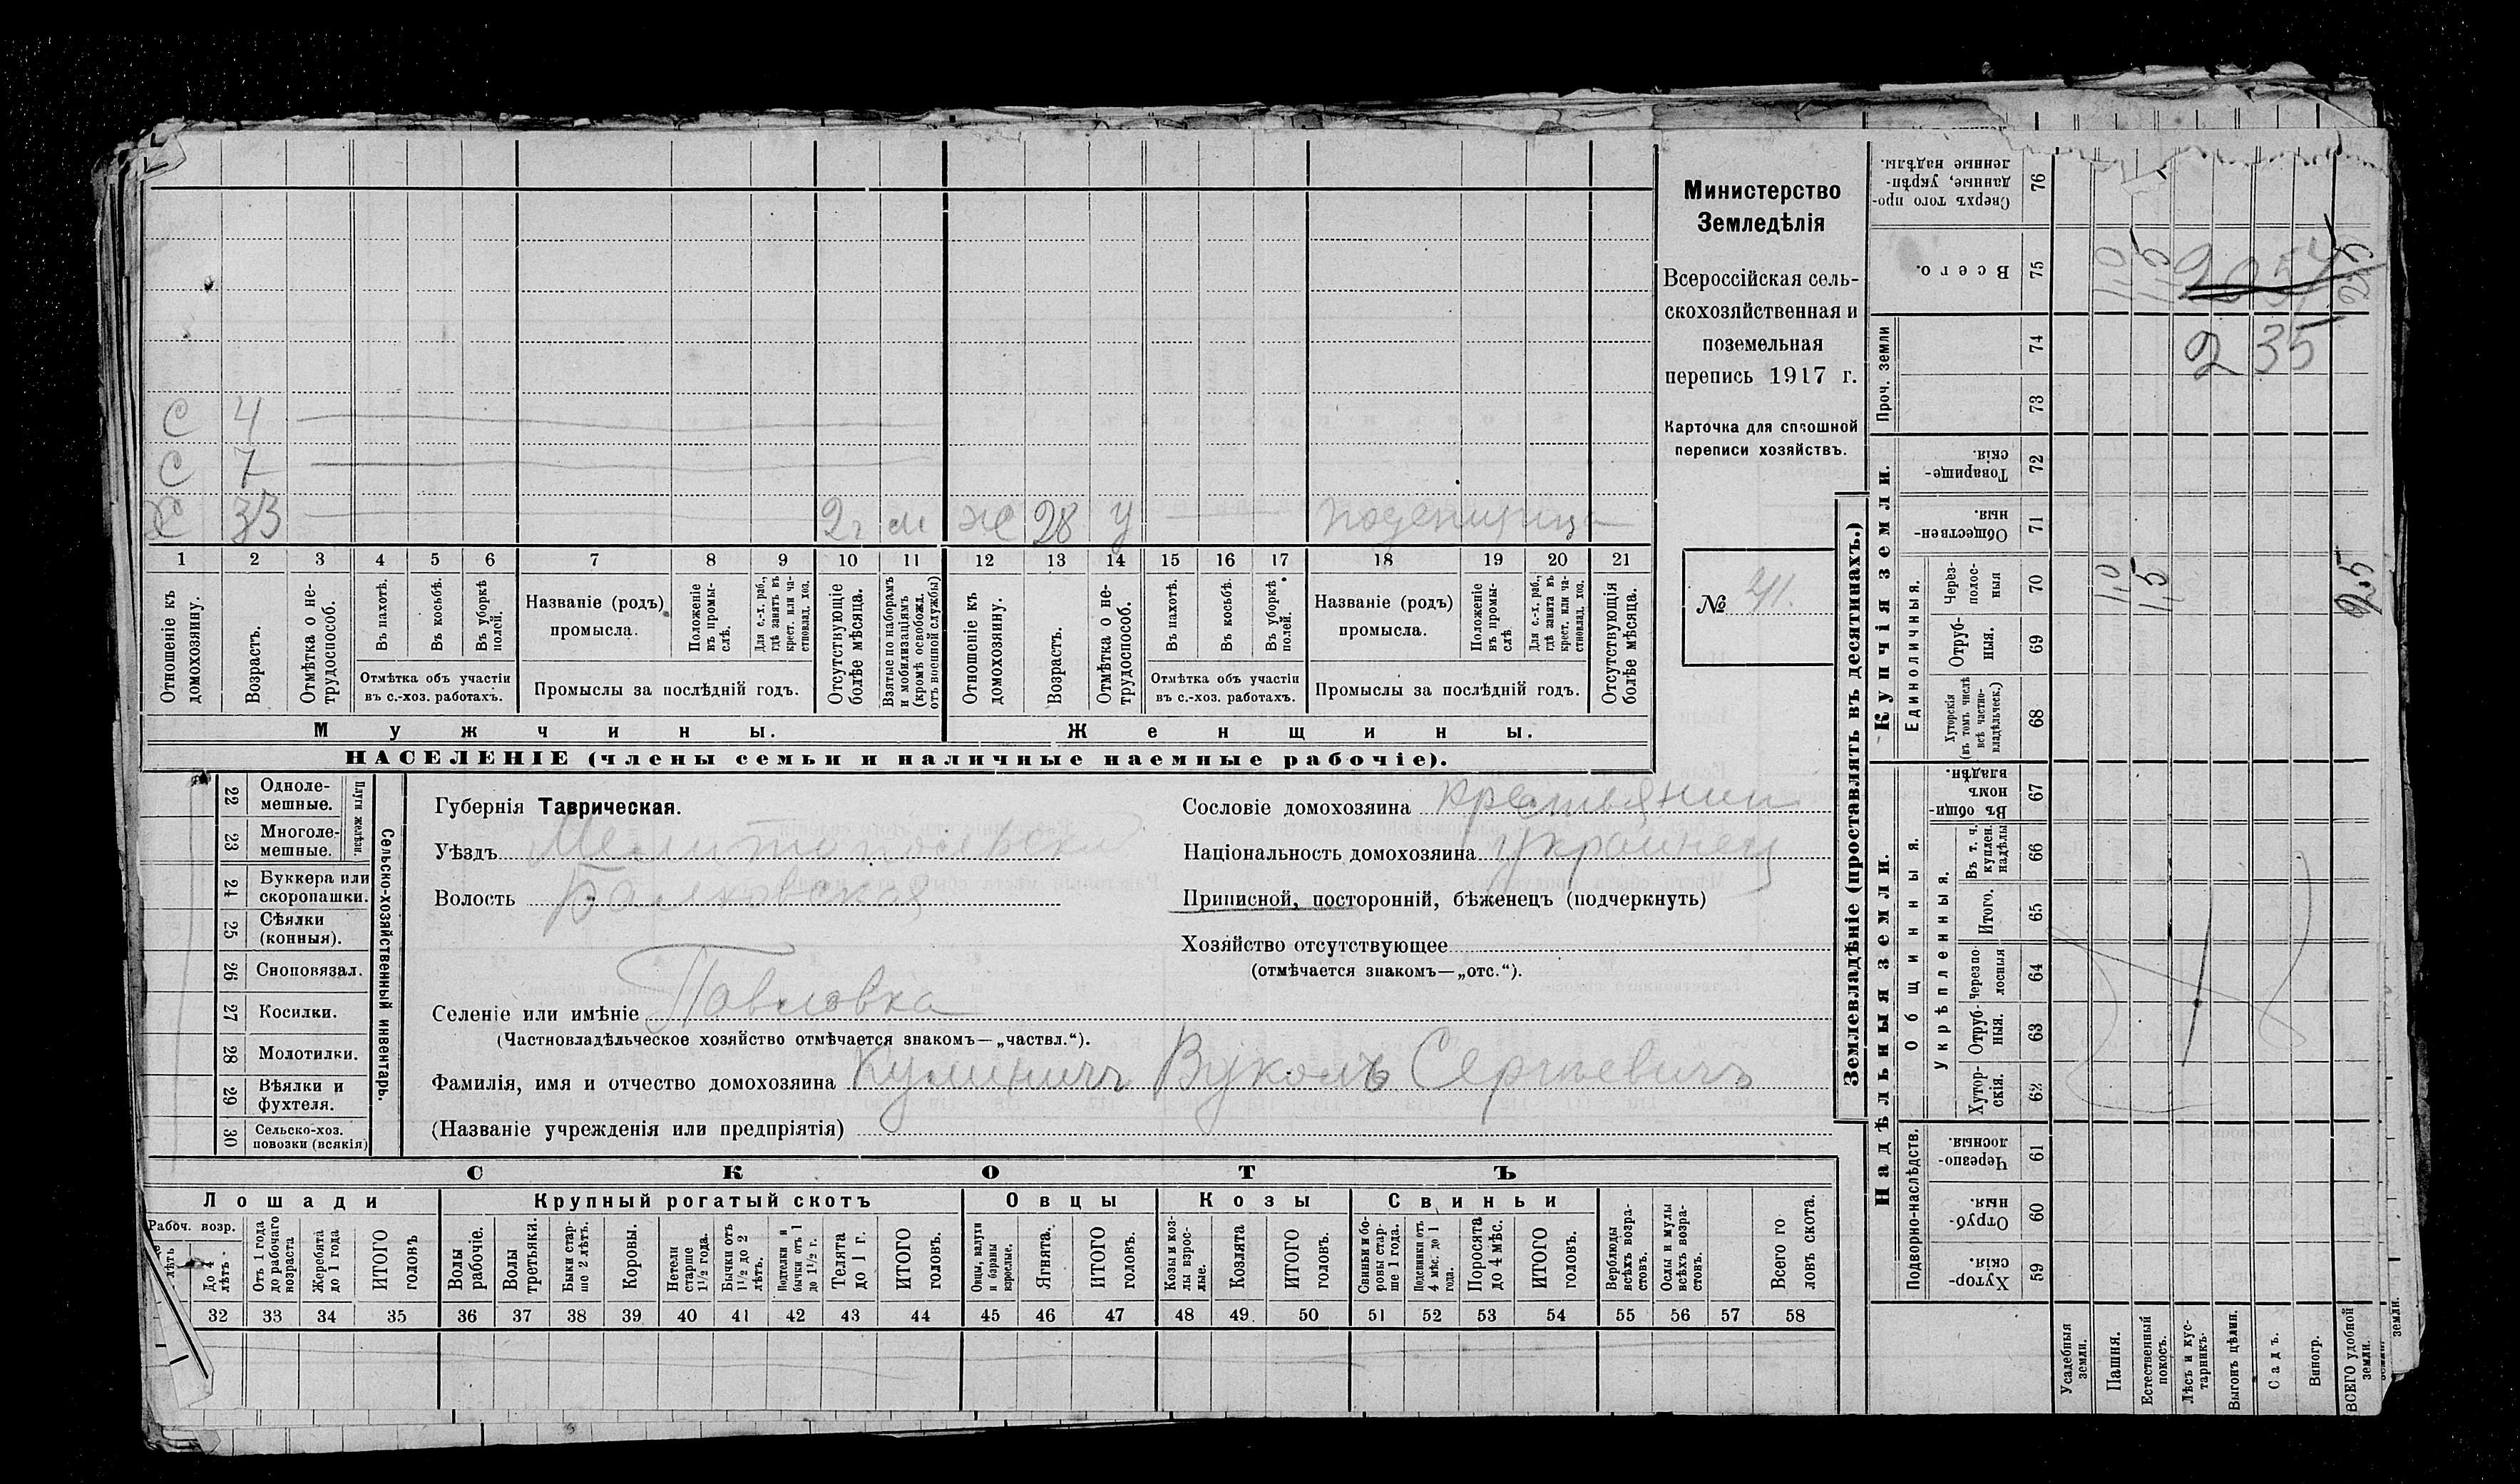 Министерство
Земледѣлія
Всероссійская сель-
скохозяйственная и
поземельная
перепись 1917 г.
Карточка для сплошной
переписи хозяйствъ.
№ 41.
С 4
С 7
Х 33 2 г м ж 28 у поденщица
1 2 3 4 5 6 7 8 9 10 11 12 13 14 15 16 17 18 19 20 21
Отношеніе къ домохозяину.
Возрастъ.
Отмѣтка о не-трудоспособ.
Въ пахотѣ.
Въ косьбѣ.
Въ уборкѣ полей.
Отмѣтка объ участіи
въ с.-хоз. работахъ.
Названіе (родъ)
промысла.
Положеніе въ промы-слѣ.
Для с.-х. раб., гдѣ занятъ въ крест. или ча-стновлад. хоз.
Промыслы за послѣдній годъ.
Отсутствующіе болѣе мѣсяца.
Взятые по наборамъ и мобилизаціямъ (кромѣ освобожд. отъ военной службы)
Отношеніе къ домохозяину.
Возрастъ.
Отмѣтка о не-трудоспособ.
Въ пахотѣ.
Въ косьбѣ.
Въ уборкѣ полей.
Отмѣтка объ участіи
въ с.-хоз. работахъ.
Названіе (родъ)
промысла.
Положеніе въ промы-слѣ
Для с.-х. раб., гдѣ занята въ крест. или ча-стновлад. хоз.
Промыслы за послѣдній годъ.
Отсутствующія болѣе мѣсяца.
Мужчины. Женщины.
НАСЕЛЕНІЕ (члены семьи и наличные наемные рабочіе).
22 Одноле-мешные.
23 Многоле-мешные.
Плуги желѣзн.
24 Буккера или скоропашки.
25 Сѣялки (конныя).
26 Сноповязал.
27 Косилки.
28 Молотилки.
29 Вѣялки и фухтеля.
30 Сельско-хоз. повозки (всякія)
Сельско-хозяйственный инвентарь.
Губернія Таврическая.
Уѣздъ Мелитопольскій
Волость Балковская
Селеніе или имѣніе Павловка
(Частновладѣльческое хозяйство отмѣчается знакомъ—„частвл.“).
Фамилія, имя и отчество домохозяина Кулиничъ Вуколъ Сергѣевичъ
(Названіе учрежденія или предпріятія)
Сословіе домохозяина крестьянин
Національность домохозяина украинец
Приписной, посторонній, бѣженецъ (подчеркнуть)
Хозяйство отсутствующее
(отмѣчается знакомъ—„отс.“).
СКОТЪ
Лошади Крупный рогатый скотъ Овцы Козы Свиньи
Рабоч. возр.
лѣтъ
До 4 лѣтъ.
Отъ 1 года до рабочаго возраста
Жеребята до 1 года
ИТОГО головъ
Волы рабочіе.
Волы третьяки.
Быки стар-ше 2 лѣтъ.
Коровы.
Нетели старше 1½ года.
Бычки отъ 1½ до 2 лѣтъ.
Подтелки и бычки отъ 1 до 1½ г.
Телята до 1 г.
ИТОГО головъ.
Овцы, валухи и бараны взрослые.
Ягнята.
ИТОГО головъ.
Козы и коз-лы взрос-лые.
Козлята
ИТОГО головъ.
Свиньи и бо-ровы стар-ше 1 года.
Подсвинки отъ 4 мѣс. до 1 года.
Поросята до 4 мѣс.
ИТОГО головъ.
Верблюды всѣхъ возра-стовъ.
Ослы и мулы всѣхъ возра-стовъ.
Всего го ловъ скота.
32 33 34 35 36 37 38 39 40 41 42 43 44 45 46 47 48 49 50 51 52 53 54 55 56 57 58
Землевладѣніе (проставлять въ десятинахъ.)
Сверхъ того про-данные, укрѣп-ленные надѣлы. 76
Всего. 75 1,0 1,5 2,5
Проч. земли 74 73
2 35
Купчія земли.
Товарище-скія. 72
Обществен-ныя. 71
Единоличныя.
Через-полос-ныя 70 1,0 1,5 2,5
Отруб-ныя. 69
Хуторскія (въ томъ числѣ всѣ частно-владѣльческ.) 68
Надѣльныя земли.
Общинныя.
Въ общи-номъ владѣн. 67
Въ т. ч. куплен. надѣлы 66
Укрѣпленныя.
Итого. 65
Черезпо лосныя 64
Отруб-ныя. 63
Хутор-скія. 62
Подворно-наслѣдств.
Черезпо-лосныя. 61
Отруб-ныя. 60
Хутор-скія. 59
Усадебныя земли.
Пашня.
Естественный покосъ.
Лѣсъ и кус-тарникъ.
Выгонъ цѣлин.
Садъ.
Виногр.
ВСЕГО удобной земли.
земли.